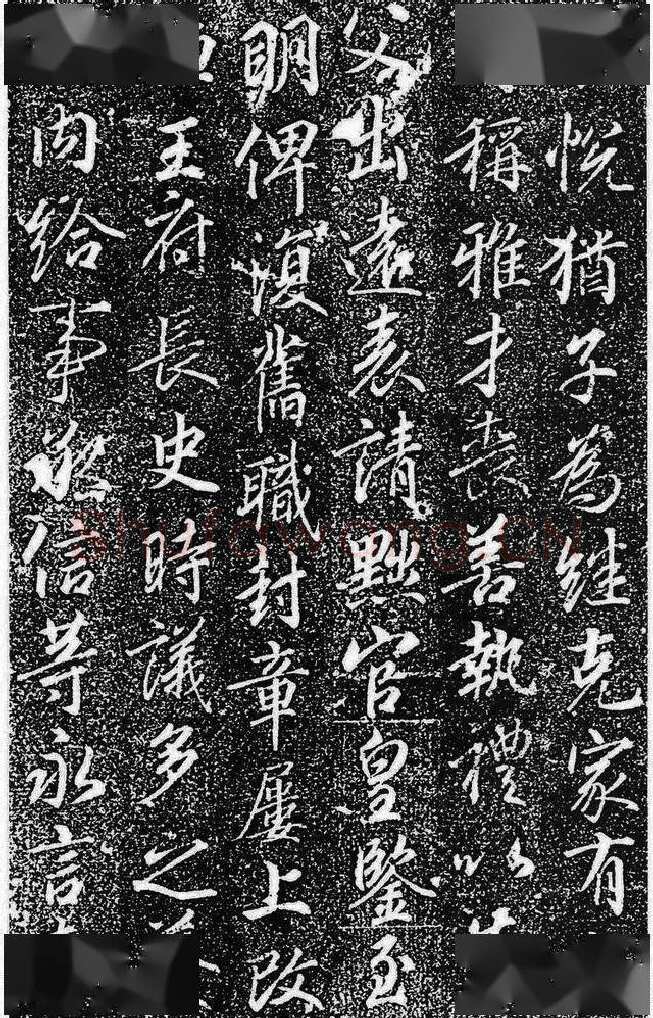 悅猶子為継克家有
稱雅才喪善執禮以
父出遠表請黜官皇鑒至
明俾復舊職封章屢上改
王府長史時議多之
内給事信等永言
shufawang.CN